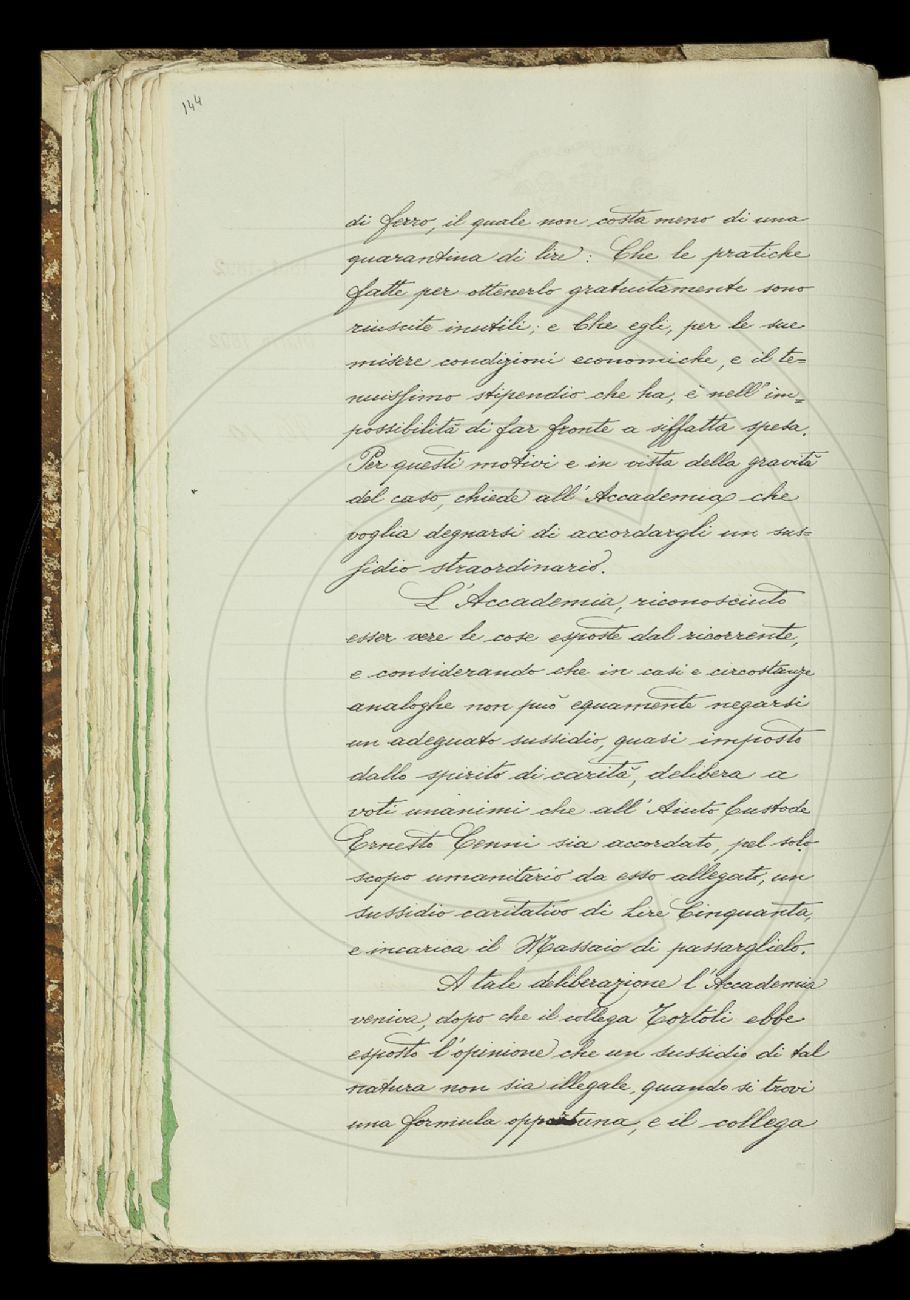 144
di ferro, il quale non costa meno di una
quarantina di lire: Che le pratiche
fatte per ottenerlo gratuitamente sono
riuscite inutili; e Che egli, per le sue
misere condizioni economiche, e il te=
nuissimo stipendio che ha, è nell'im=
possibilità di far fronte a siffatta spesa.
Per questi motivi e in vista della gravità
del caso, chiede all'Accademia che
voglia degnarsi di accordargli un sus=
sidio straordinario.
L'Accademia, riconosciuto
esser vere le cose esposte dal ricorrente,
e considerando che in casi e circostanze
analoghe non può equamente negarsi
un adeguato sussidio, quasi imposto
dallo spirito di carità, delibera a
voti unanimi che all'Aiuto Custode
Ernesto Cenni sia accordato, pel solo
scopo umanitario da esso allegato, un
sussidio caritativo di Lire Cinquanta,
e incarica il Massaio di passarglielo.
A tale deliberazione l'Accademia
veniva, dopo che il collega Tortoli ebbe
esposto l'opinione che un sussidio di tal
natura non sia illegale, quando si trovi
una formula opportuna, e il collega